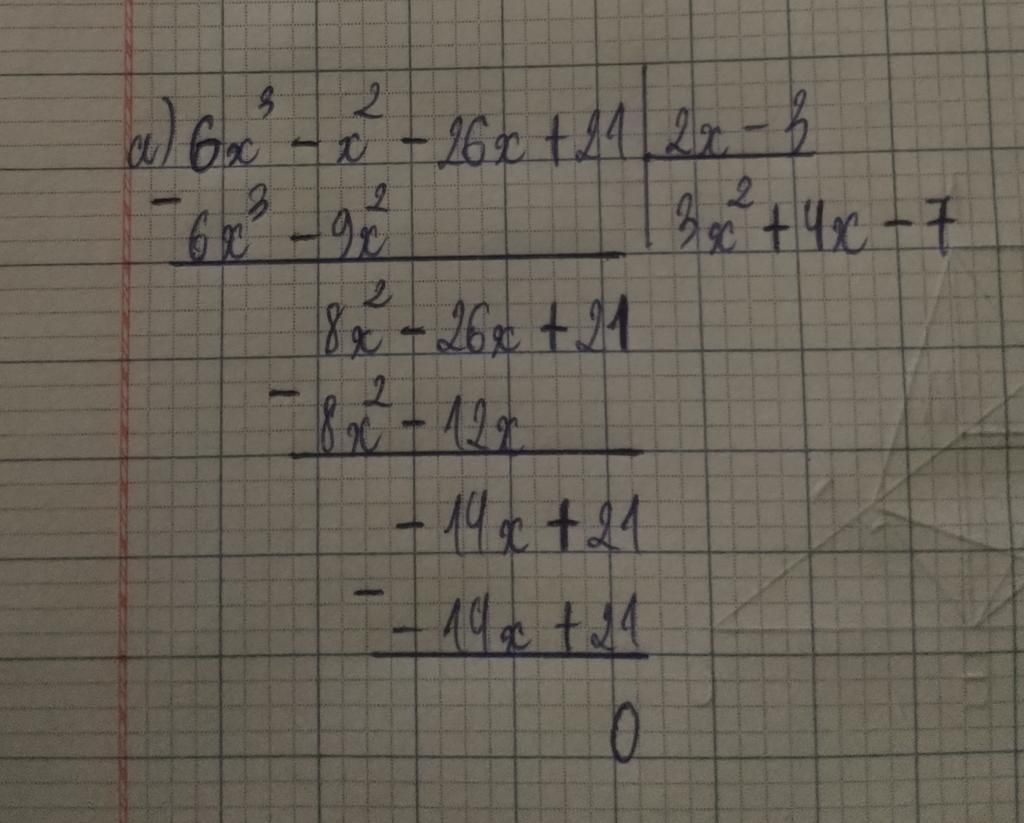 a) 6x³ - x² - 26x + 21 | 2x - 3
- 6x³ - 9x² | 3x² + 4x - 7
8x² - 26x + 21
- 8x² - 12x
- 14x + 21
- - 14x + 21
0